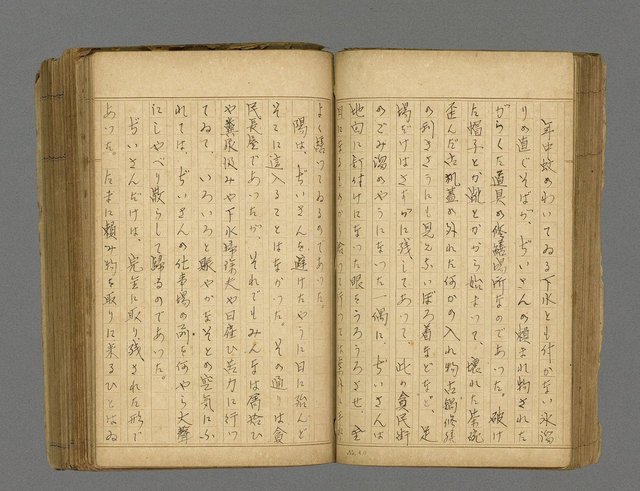 年中蚊のわいてゐる下水とも付かない水溜
りの直ぐそばが、ぢいさんの頼まれ物された
がらくた道具の修繕場所なのであった。破け
た帽子とか靴とかから始まって、壊れた茶碗
歪んだ古机蓋の外れた何かの入れ物古鍋修繕
の利きさうにも見えないぼろ着などなど、足
場だけはさすがに残してあって 此の貧民街
のごみ溜のやうになった一偶に、ぢいさんは
地向に釘付けになった眼をうろうろさせ、全
よく続いてゐるのであった。
陽は、ぢいさんを避けたやうに日に殆んど
そこに這入ることはなかった。その通りは貧
民長屋であったが、それでもみんなは屑拾ひ
や糞尿汲みや下水掃除夫や日雇ひ苦力に行っ
てゐて、いろいろと賑やかなそとの空気にふ
れては、ぢいさんの仕事場の前を何やら大聲
にしゃべり散らして歸るのであった。
ぢいさんだけは、完全に取り残された形で
あった。たまに頼み物を取りに来るひとはゐ